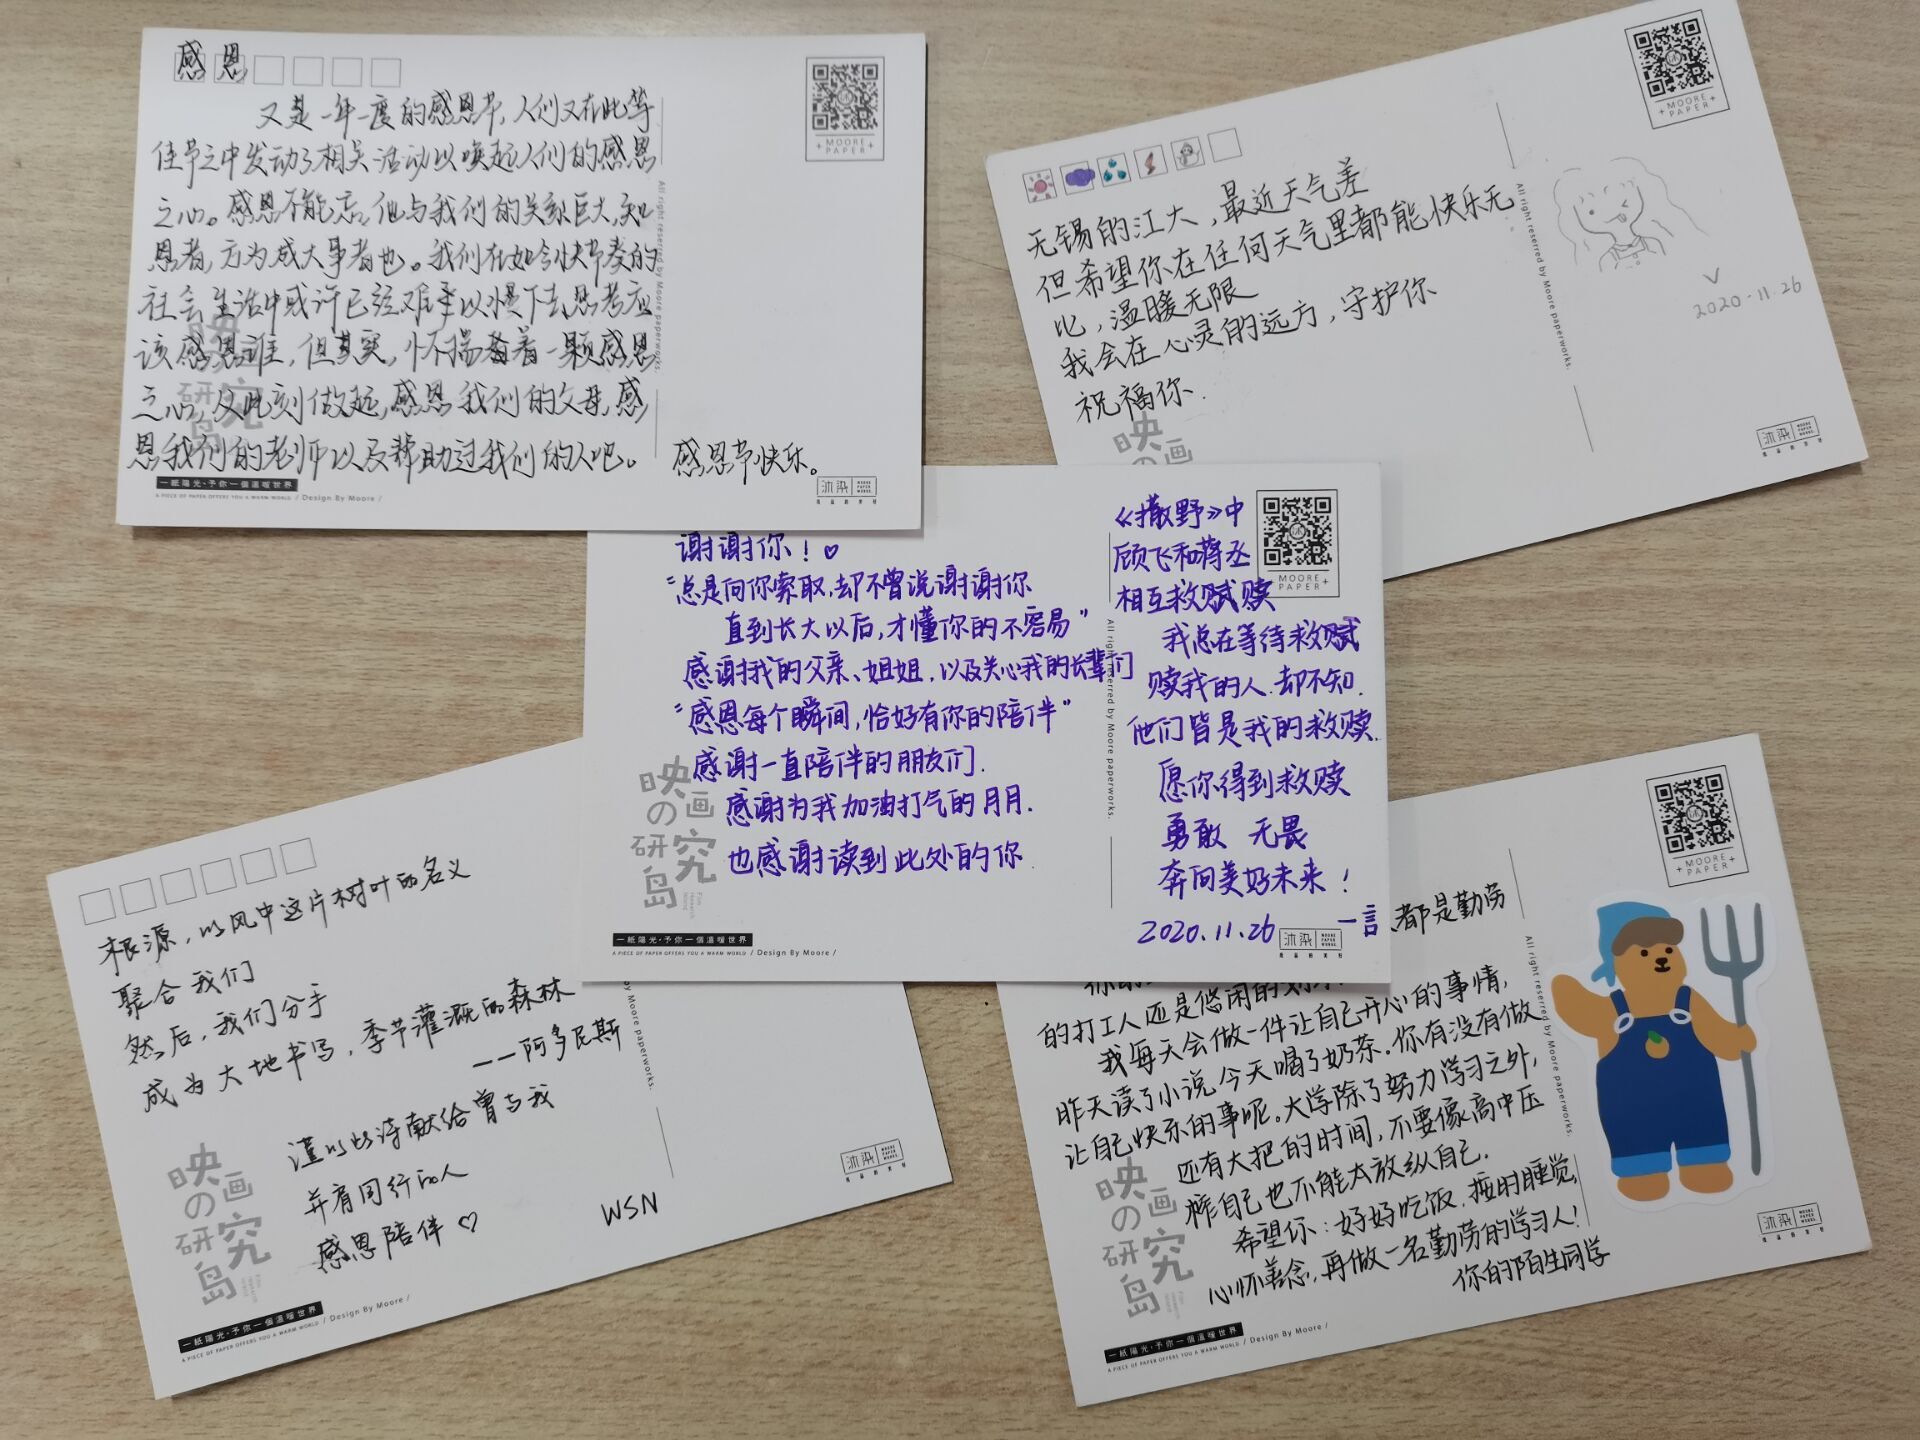 感恩
又是一年一度的感恩节,人们又在此等
佳节之中发动了相关活动以唤起人们的感恩
之心。感恩不能忘,他与我们的关系巨大,知
恩者,方为成大事者也。我们在如今快节奏的
社会生活中或许已经难以慢下去思考应
该感恩谁,但其实,怀揣着一颗感恩
之心,从此刻做起,感恩我们的父母,感
恩我们的老师以及帮助过我们的人吧。
感恩节快乐。
MOORE
PAPER
All right reserved by Moore paperworks.
映画の研究岛
一紙陽光·予你一個溫暖世界
A PIECE OF PAPER OFFERS YOU A WARM WORLD / Design By Moore /
沐染 MOORE PAPER WORKS
无锡的江大,最近天气差
但希望你在任何天气里都能快乐无
比,温暖无限
我会在心灵的远方,守护你
祝福你.
2020.11.26
MOORE
PAPER
All right reserred by Moore paperworks.
映画
沐染 MOORE PAPER WORKS
谢谢你!♡
“总是向你索取,却不曾说谢谢你
直到长大以后,才懂你的不容易”
感谢我的父亲、姐姐,以及关心我的长辈们
“感恩每个瞬间,恰好有你的陪伴”
感谢一直陪伴的朋友们.
感谢为我加油打气的月月.
也感谢读到此处的你.
《撒野》中
顾飞和蒋丞
相互救赎
我总在等待救
赎我的人.却不知.
他们皆是我的救赎.
愿你得到救赎
勇敢 无畏
奔向美好未来!
2020.11.26 一言
MOORE
PAPER
All right reserred by Moore paperworks.
映画の研究岛
一紙陽光·予你一個溫暖世界
A PIECE OF PAPER OFFERS YOU A WARM WORLD / Design By Moore /
沐染 MOORE PAPER WORKS
根源,以风中这片树叶的名义
聚合我们
然后,我们分手
成为大地书写,季节灌溉的森林
——阿多尼斯
谨以此诗献给曾与我
并肩同行的人
感恩陪伴♡
WSN
by Moore paperworks.
映画の研究岛
一紙陽光·予你一個溫暖世界
A PIECE OF PAPER OFFERS YOU A WARM WORLD / Design By Moore /
沐染 MOORE PAPER WORKS
都是勤劳
的打工人还是悠闲的
我每天会做一件让自己开心的事情,
昨天读了小说,今天喝了奶茶.你有没有做
让自己快乐的事呢。大学除了努力学习之外,
还有大把的时间,不要像高中压
榨自己也不能太放纵自己.
希望你:好好吃饭.按时睡觉,
心怀善念,再做一名勤劳的学习人!
你的陌生同学
MOORE
PAPER
All right reserred by Moore paperworks.
映画の研究岛
一紙陽光·予你一個溫暖世界
A PIECE OF PAPER OFFERS YOU A WARM WORLD / Design By Moore /
沐染 MOORE PAPER WORKS